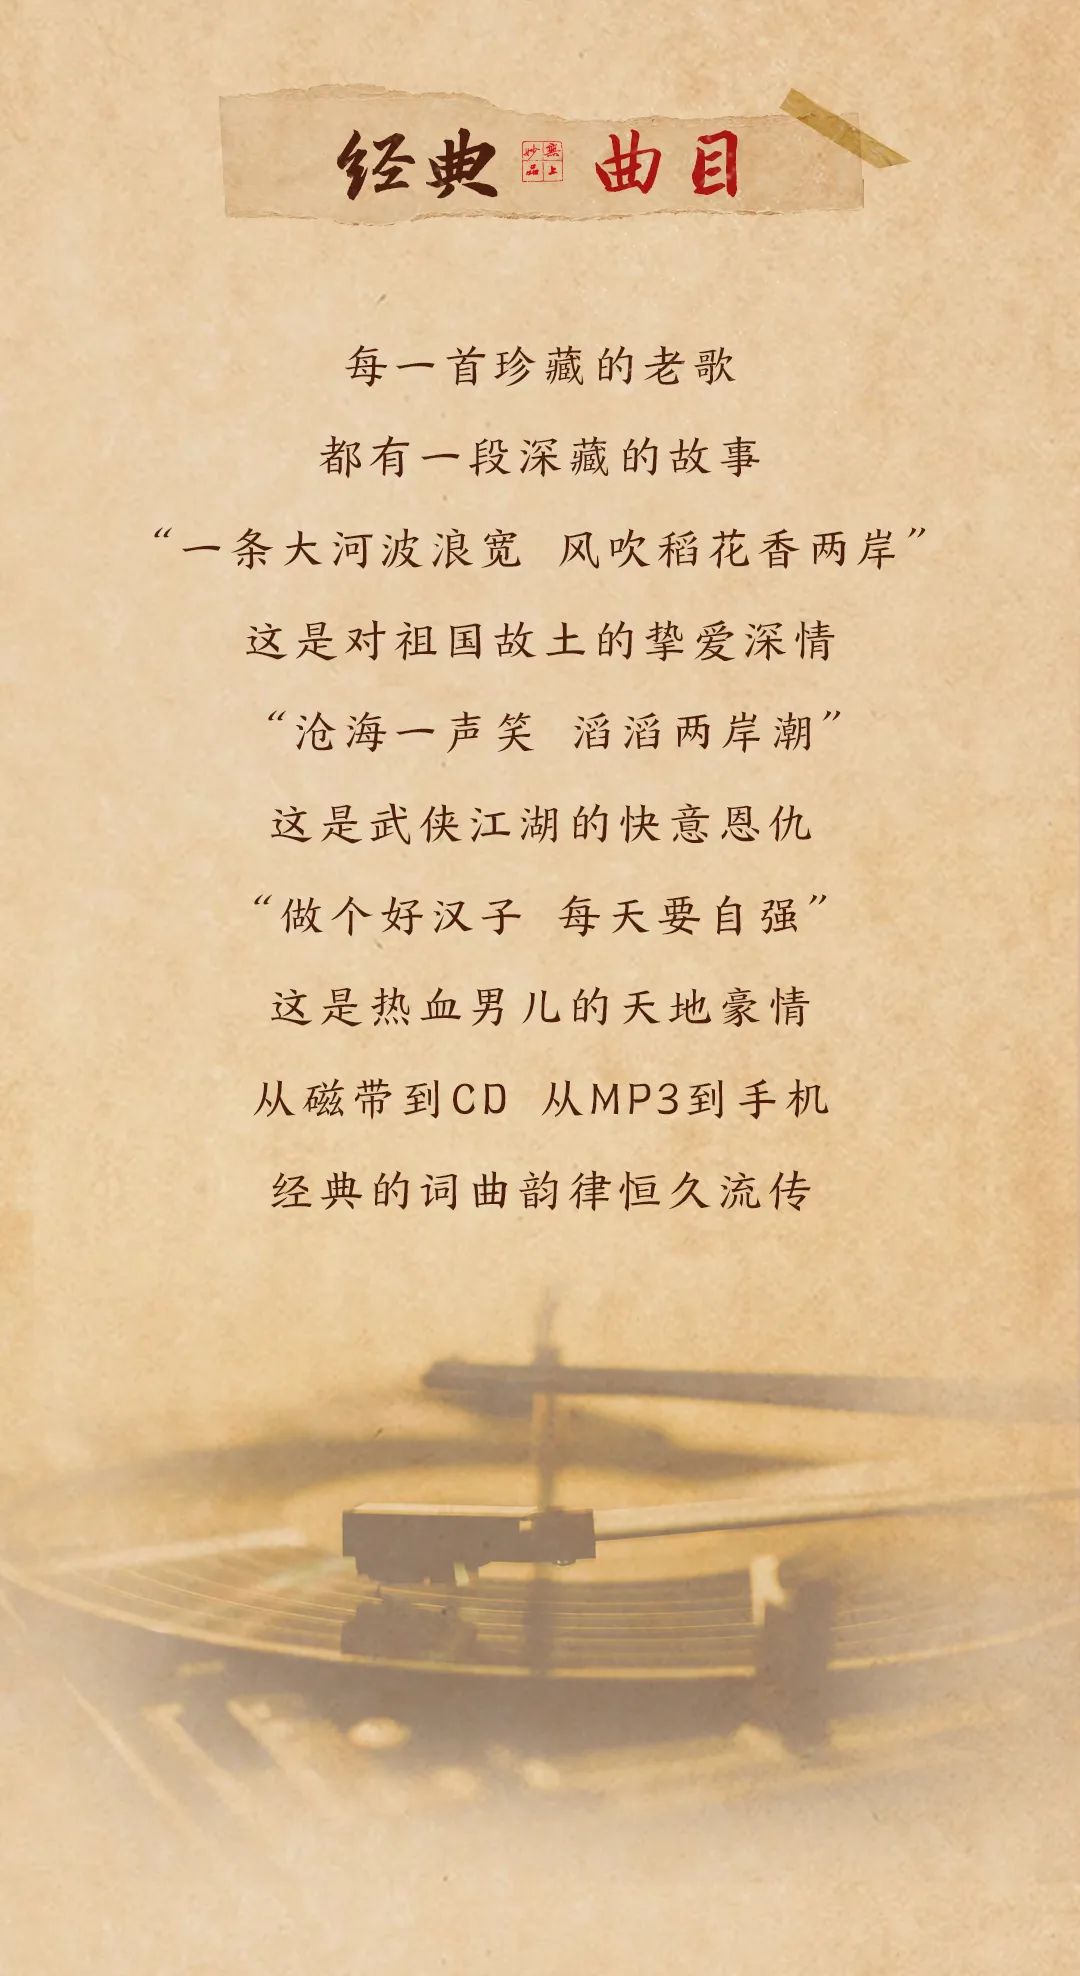 经典 無上妙品 曲目
每一首珍藏的老歌
都有一段深藏的故事
“一条大河波浪宽 风吹稻花香两岸”
这是对祖国故土的挚爱深情
“沧海一声笑 滔滔两岸潮”
这是武侠江湖的快意恩仇
“做个好汉子 每天要自强”
这是热血男儿的天地豪情
从磁带到CD 从MP3到手机
经典的词曲韵律恒久流传